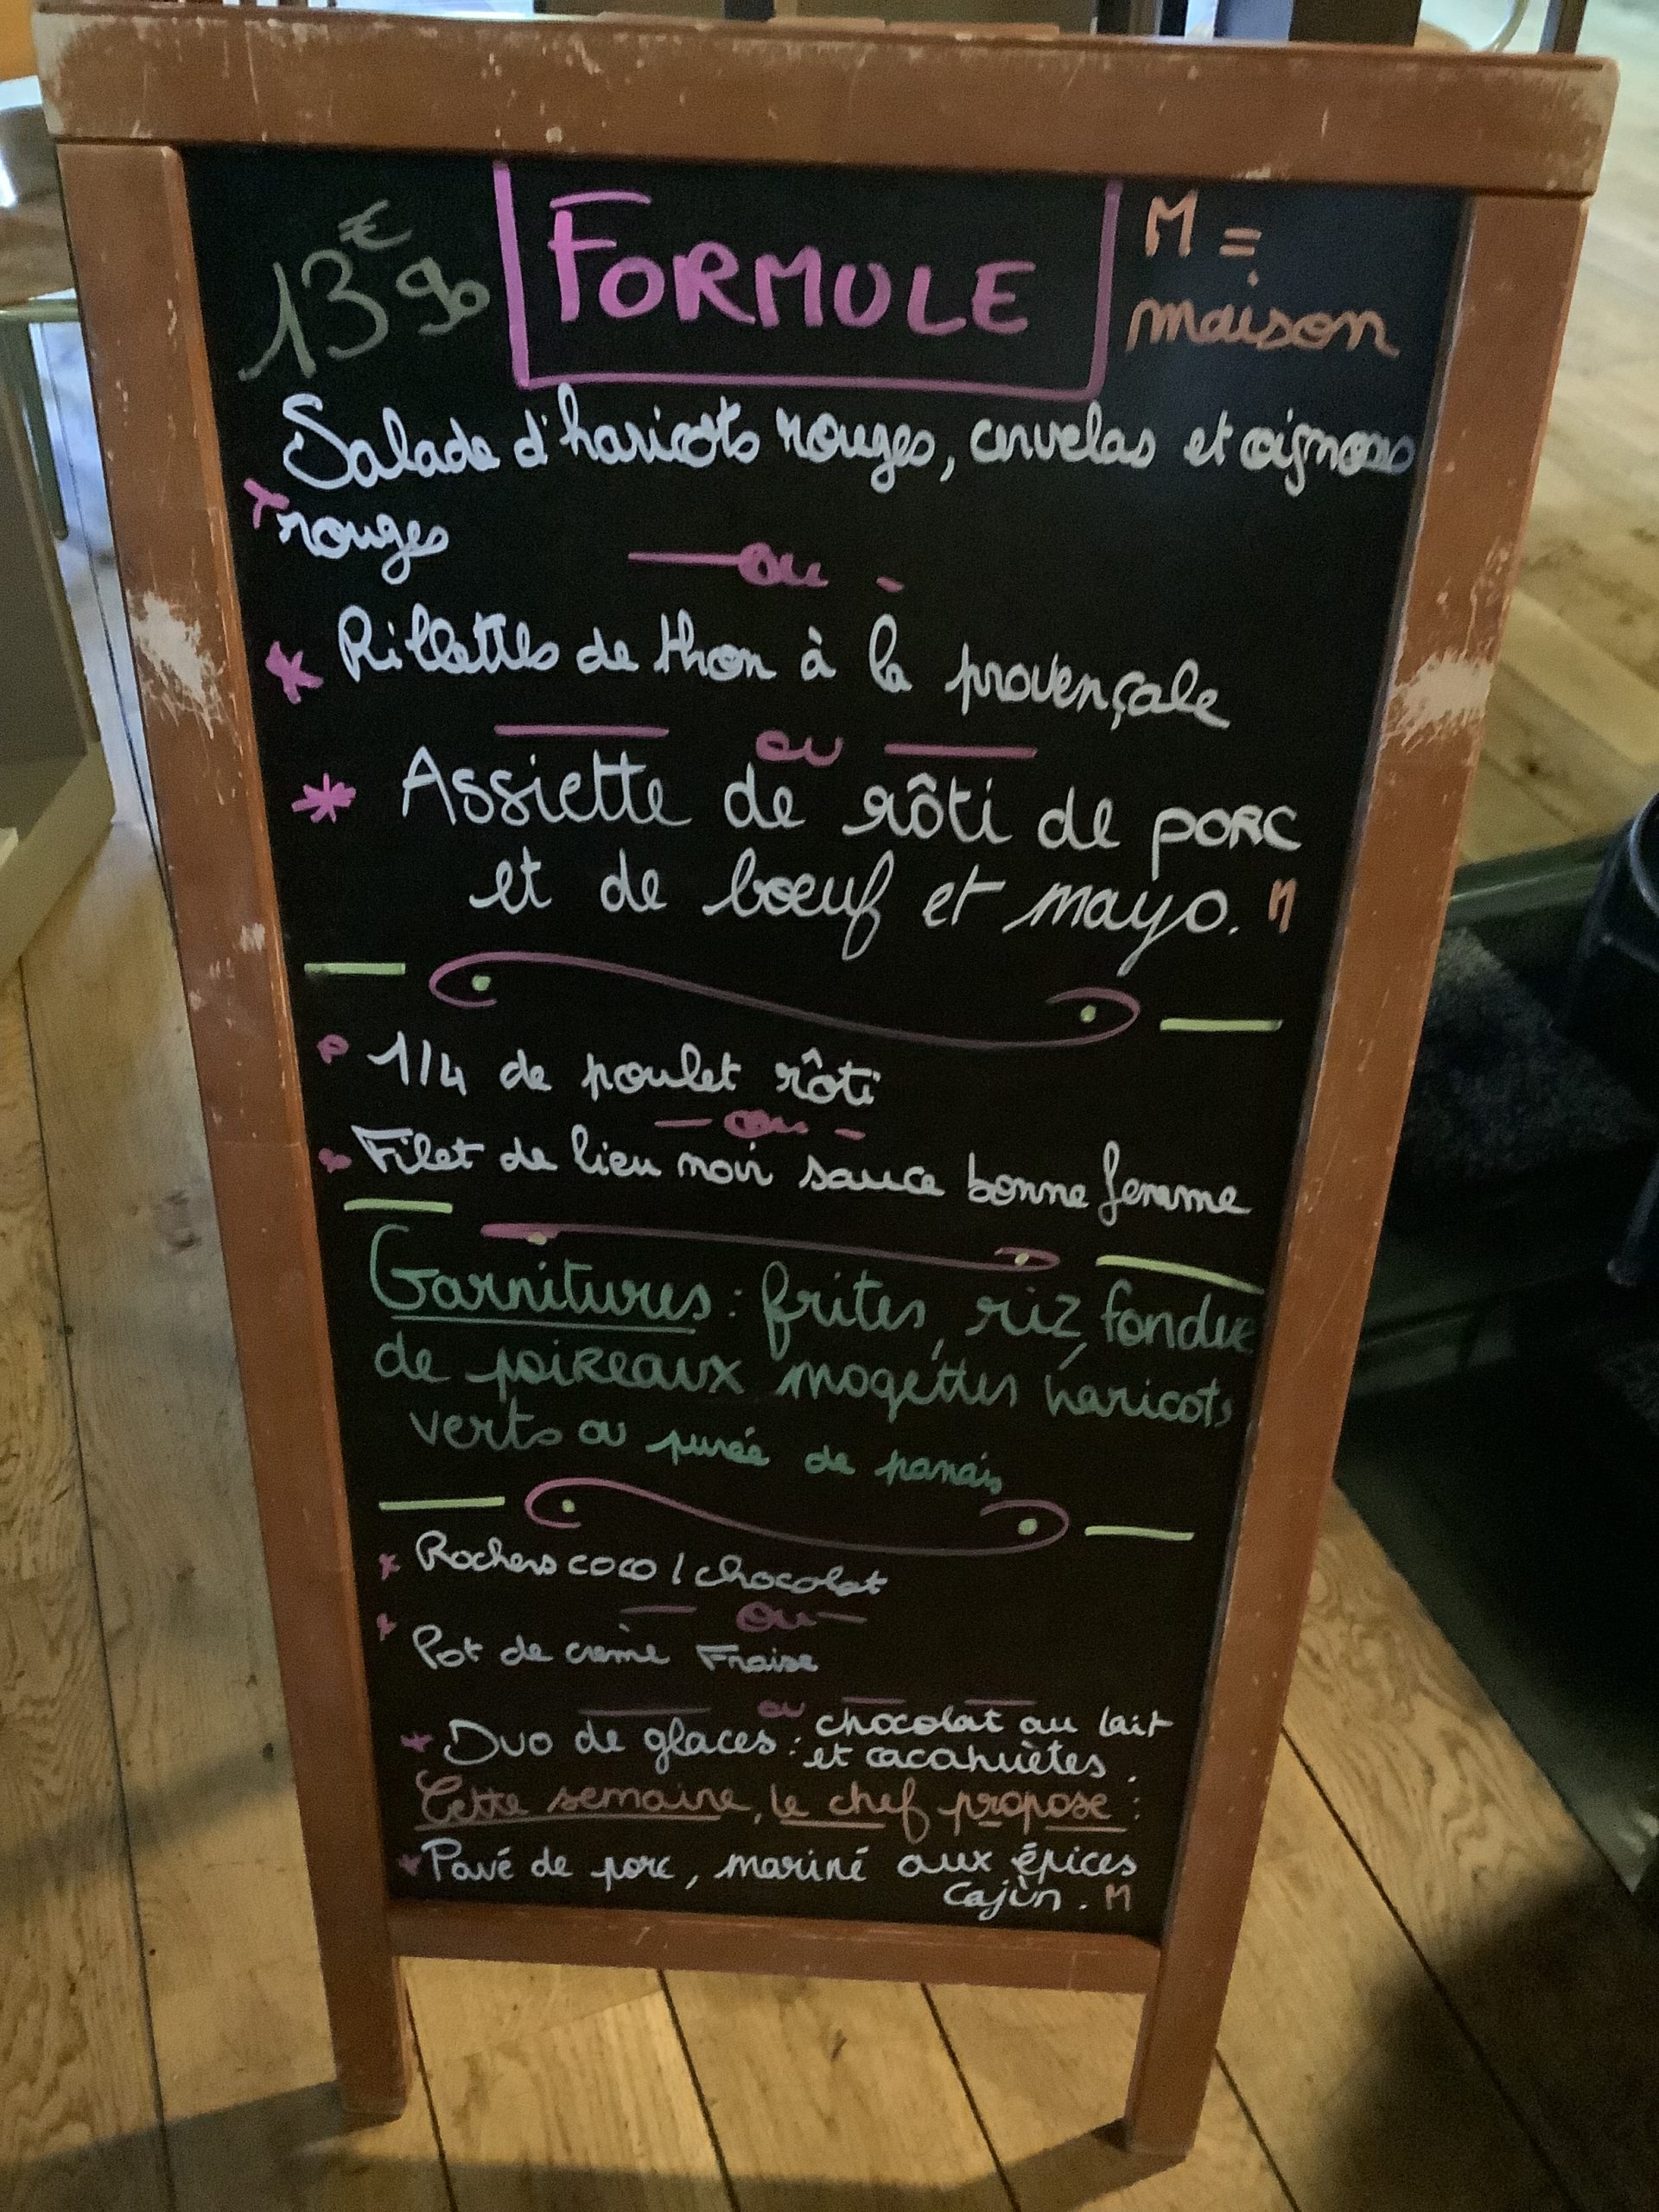 13€90
FORMULE
M =
maison
Salade d'haricots rouges, cervelas et oignons
rouges
ou
Rillettes de thon à la provençale
ou
Assiette de rôti de porc
et de bœuf et mayo. M
1/4 de poulet rôti
ou
Filet de lieu noir sauce bonne femme
Garnitures : frites, riz, fondue
de poireaux, mogettes, haricots
verts ou purée de panais
Rochers coco / chocolat
ou
Pot de crème Fraise
ou
Duo de glaces : chocolat au lait
et cacahuètes.
Cette semaine, le chef propose :
Pavé de porc, mariné aux épices
Cajùn. M